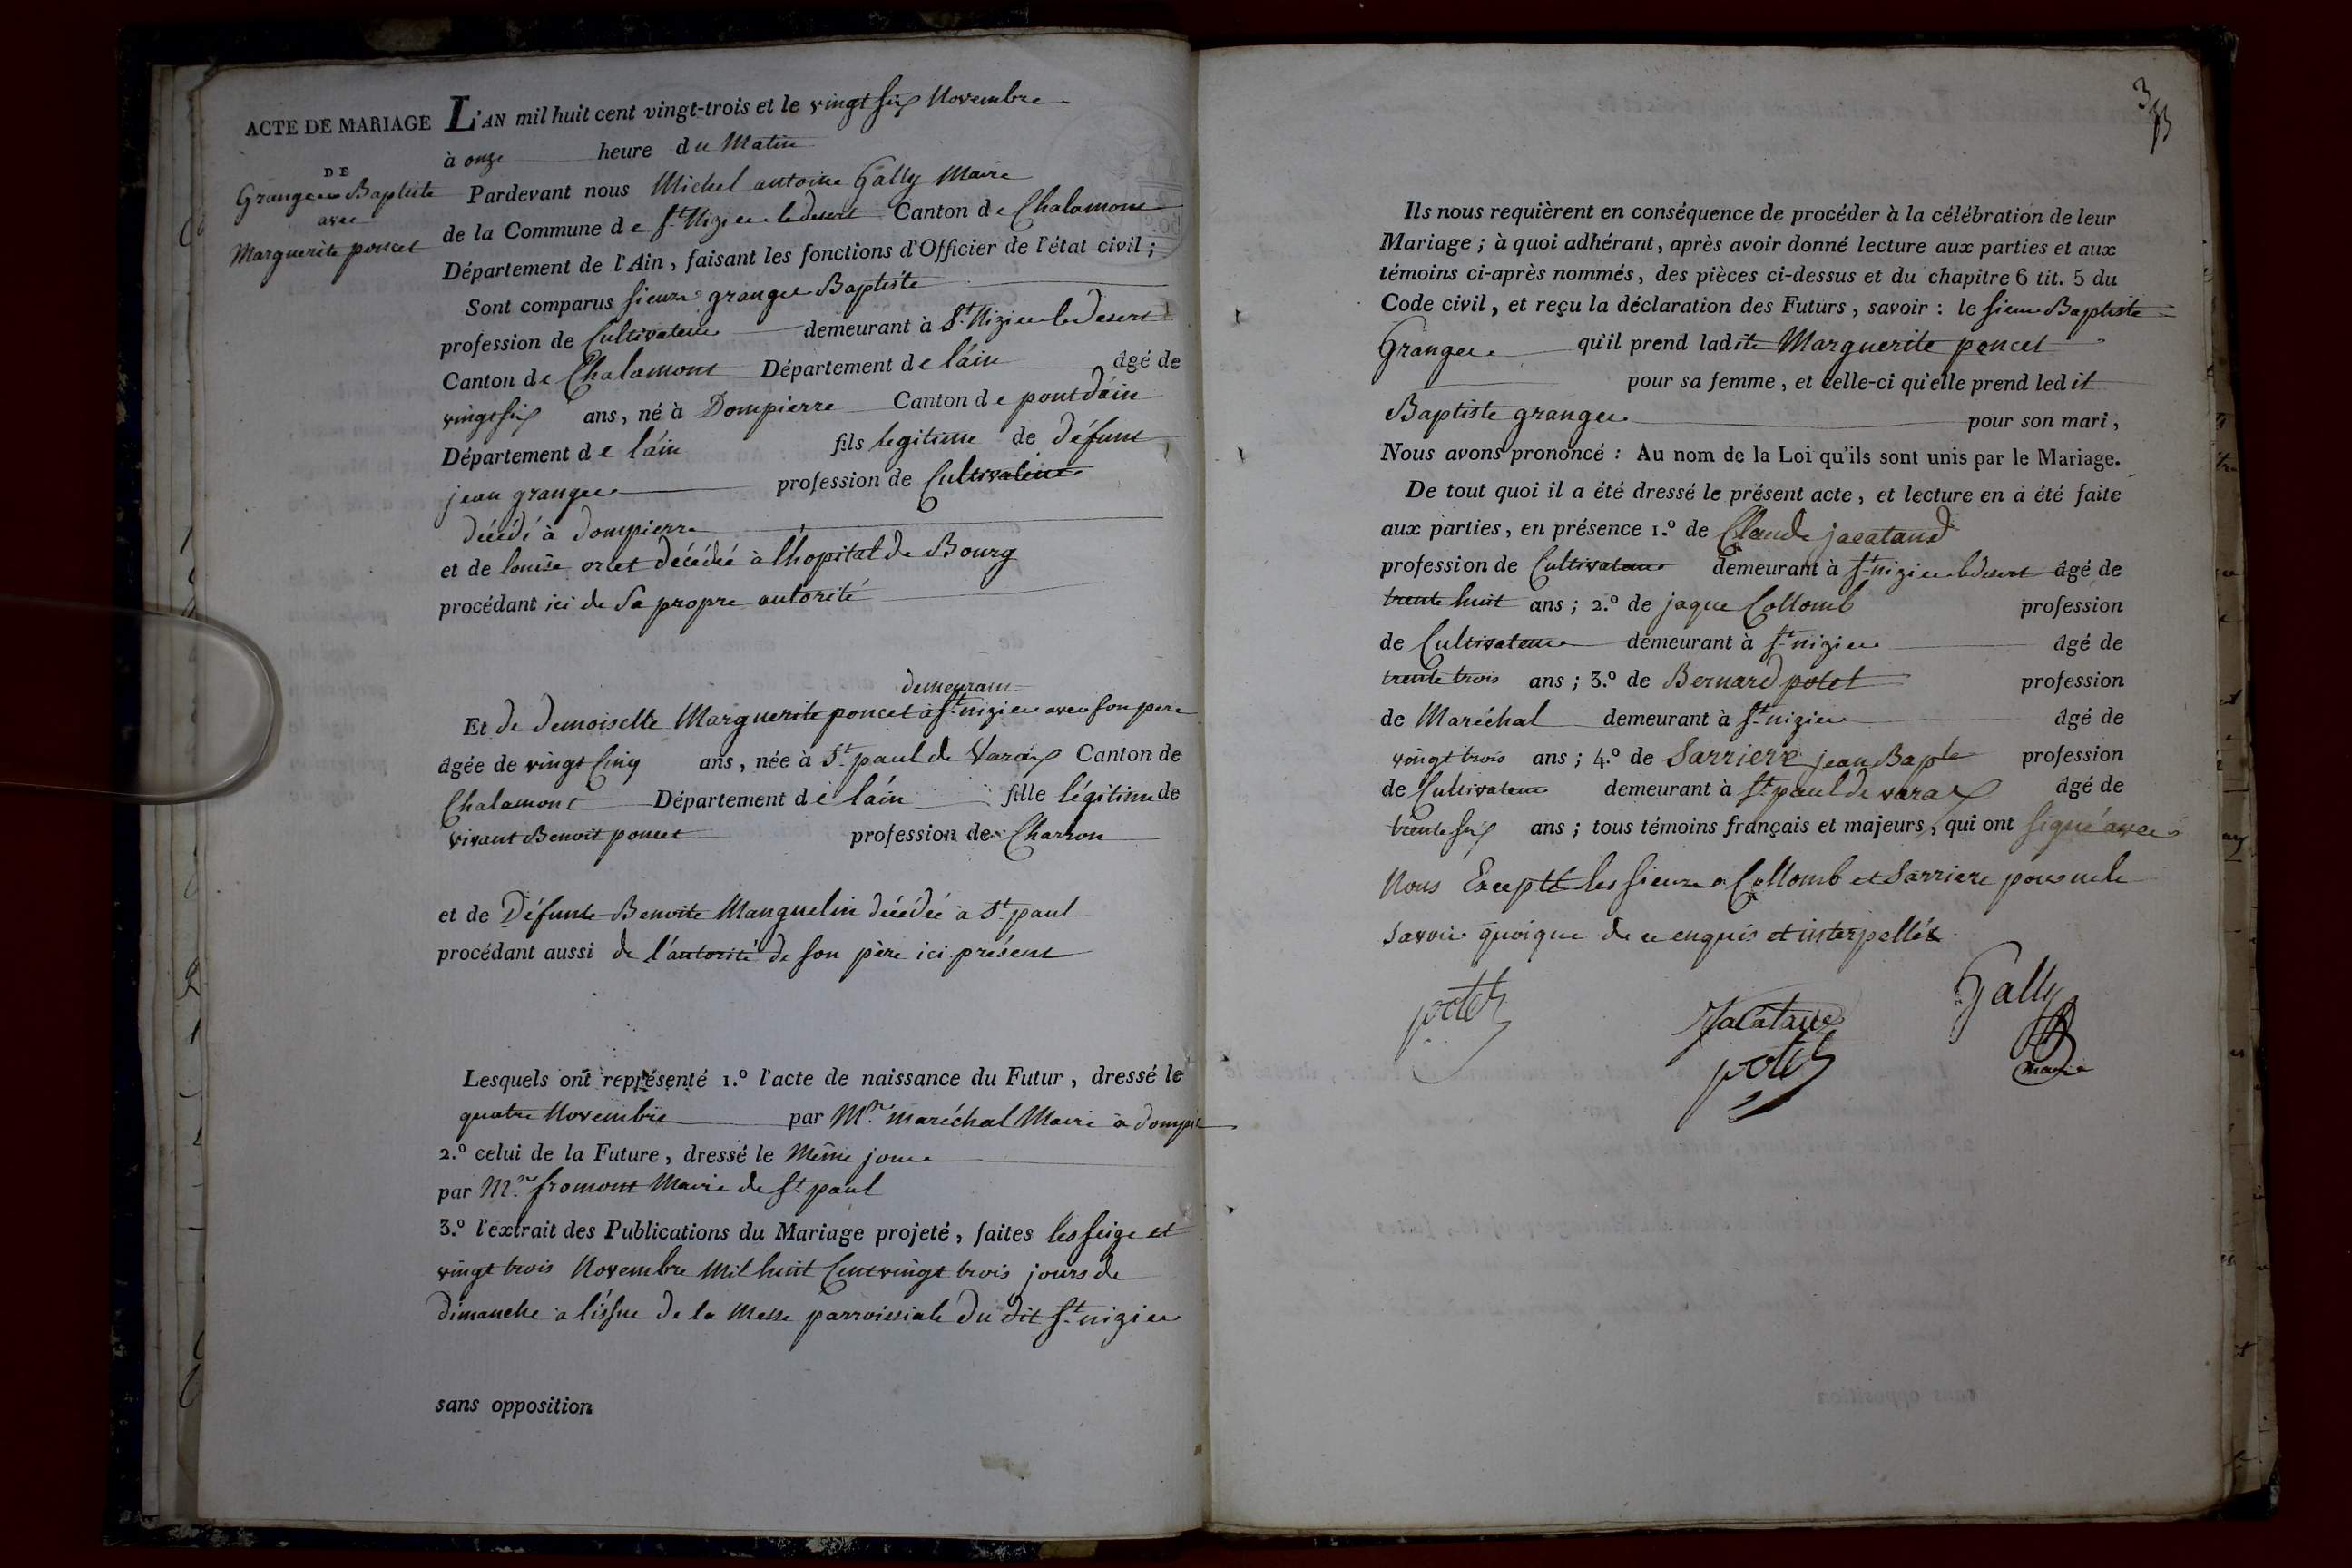 ACTE DE MARIAGE
DE
Granger Baptiste
avec
Marguerite poncet
L'AN mil huit cent vingt-trois et le vingt six Novembre
à onze heure du Matin
Pardevant nous Michel antoine Gally Maire
de la Commune de St Nizier le desert Canton de Chalamont
Département de l'Ain, faisant les fonctions d'Officier de l'état civil;
Sont comparus sieur granger Baptiste
profession de Cultivateur demeurant à St Nizier le Desert
Canton de Chalamont Département de l'ain âgé de
vingt six ans, né à Dompierre Canton de pont d'ain
Département de l'ain fils legitime de défunt
jean granger profession de Cultivateur
décédé à Dompierre
et de louise orset décédée à lhopital de Bourg
procédant ici de sa propre autorité
demeurant
Et de demoiselle Marguerite poncet à St nizier avec son pere
âgée de vingt Cinq ans, née à St paul de Varax Canton de
Chalamont Département de l'ain fille légitime de
vivant Benoit poncet profession de Charron
et de Défunte Benoite Manguelin décédée à St paul
procédant aussi de l'autorité de son père ici présent
Lesquels ont représenté 1.º l'acte de naissance du Futur, dressé le
quatre Novembre par Mr. maréchal Maire à dompie
2.º celui de la Future, dressé le Même jour
par Mr. fromont Maire de St paul
3.º l'extrait des Publications du Mariage projeté, faites les seize et
vingt trois Novembre Mil huit Cent vingt trois jours de
dimanche a l'issue de la Messe parroissiale du dit St nizier
sans opposition
Ils nous requièrent en conséquence de procéder à la célébration de leur
Mariage; à quoi adhérant, après avoir donné lecture aux parties et aux
témoins ci-après nommés, des pièces ci-dessus et du chapitre 6 tit. 5 du
Code civil, et reçu la déclaration des Futurs, savoir: le sieur Baptiste
Granger qu'il prend ladite Marguerite poncet
pour sa femme, et celle-ci qu'elle prend ledit
Baptiste granger pour son mari,
Nous avons prononcé: Au nom de la Loi qu'ils sont unis par le Mariage.
De tout quoi il a été dressé le présent acte, et lecture en a été faite
aux parties, en présence 1.º de Claude jacataud
profession de Cultivateur demeurant à St nizier le desert âgé de
trente huit ans; 2.º de jaque Collomb profession
de Cultivateur demeurant à St nizier âgé de
trente trois ans; 3.º de Bernard potet profession
de Maréchal demeurant à St nizier âgé de
vingt trois ans; 4.º de Sarriere jean Bapte profession
de Cultivateur demeurant à St paul de varax âgé de
trente six ans; tous témoins français et majeurs, qui ont signé avec
Nous Excepté les sieurs Collomb et Sarriere pour ne le
savoir quoique de ce enquis et interpellés
potet
Jacataud
Gally
potet
maire